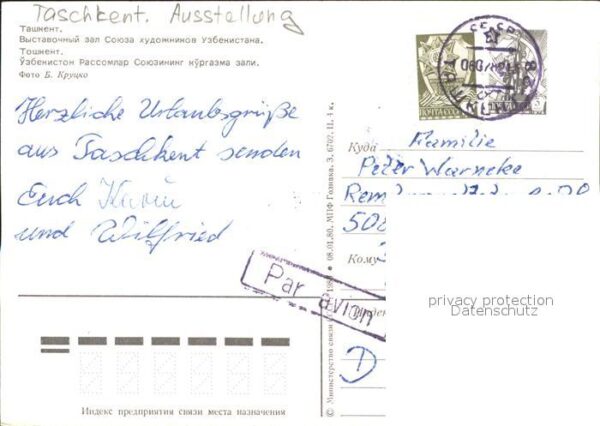 Taschkent. Ausstellung
Ташкент.
Выставочный зал Союза художников Узбекистана.
Тошкент.
Ўзбекистон Рассомлар Союзининг кўргазма зали.
Фото Б. Круцко
Herzliche Urlaubsgrüße
aus Taschkent senden
Euch Karin
und Wilfried
Par avion
Индекс предприятия связи места назначения
© Министерство связи 08.01.80. МПФ Гознака. З. 6702. Ц. 4 к.
ПОЧТА СССР
Куда
Familie
Peter Warneke
508
Кому
privacy protection
Datenschutz
D